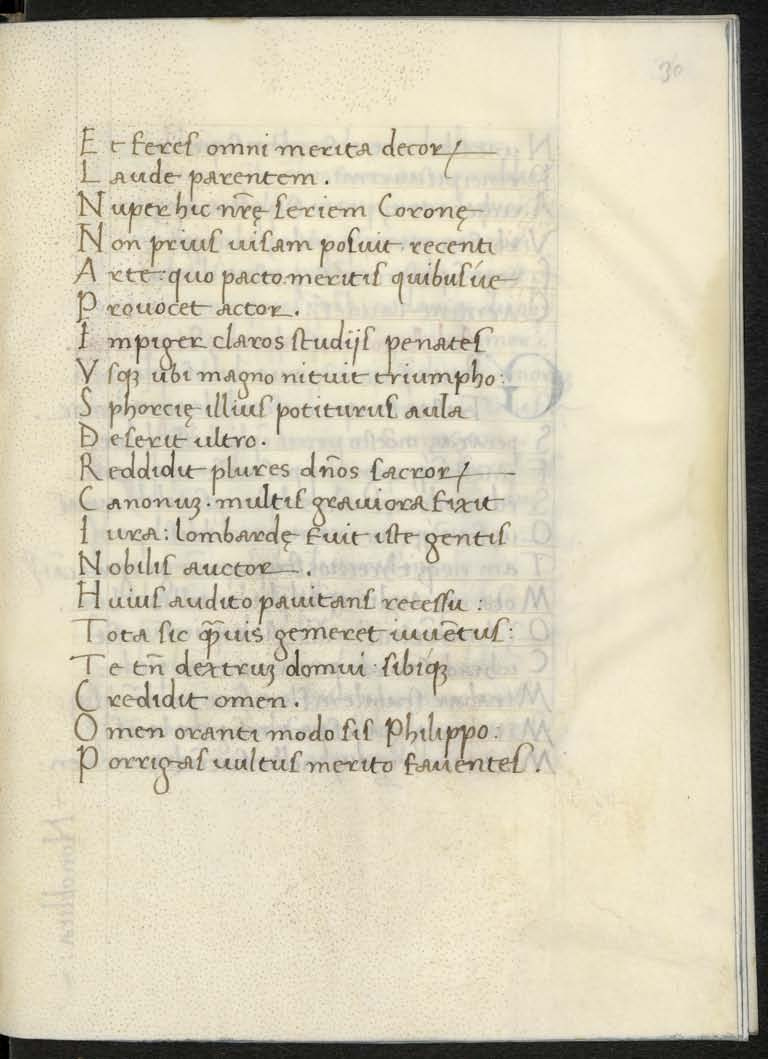 30
Et feres omni merita decor/
Laude parentem.
Nuper hic nr̄ę seriem Coronę
Non prius uisam posuit recenti
Arte: quo pacto meritis quibusúe
Prouocet actor.
Impiger claros studijs penates
Vsqꝫ ubi magno nituit triumpho:
Sphorcię illius potiturus aula
Deserit ultro.
Reddidit plures dn̄os sacror/
Canonuꝫ. multis grauiora fixit
Iura: lombardę fuit iste gentis
Nobilis auctor.
Huius audito pauitans recessu:
Tota sic qͣ̄uis gemeret iuuētus:
Te tn̄ dextruꝫ domui sibíqꝫ
Credidit omen.
Omen oranti modo sis Philippo:
Porrigas uultus merito fauentes.